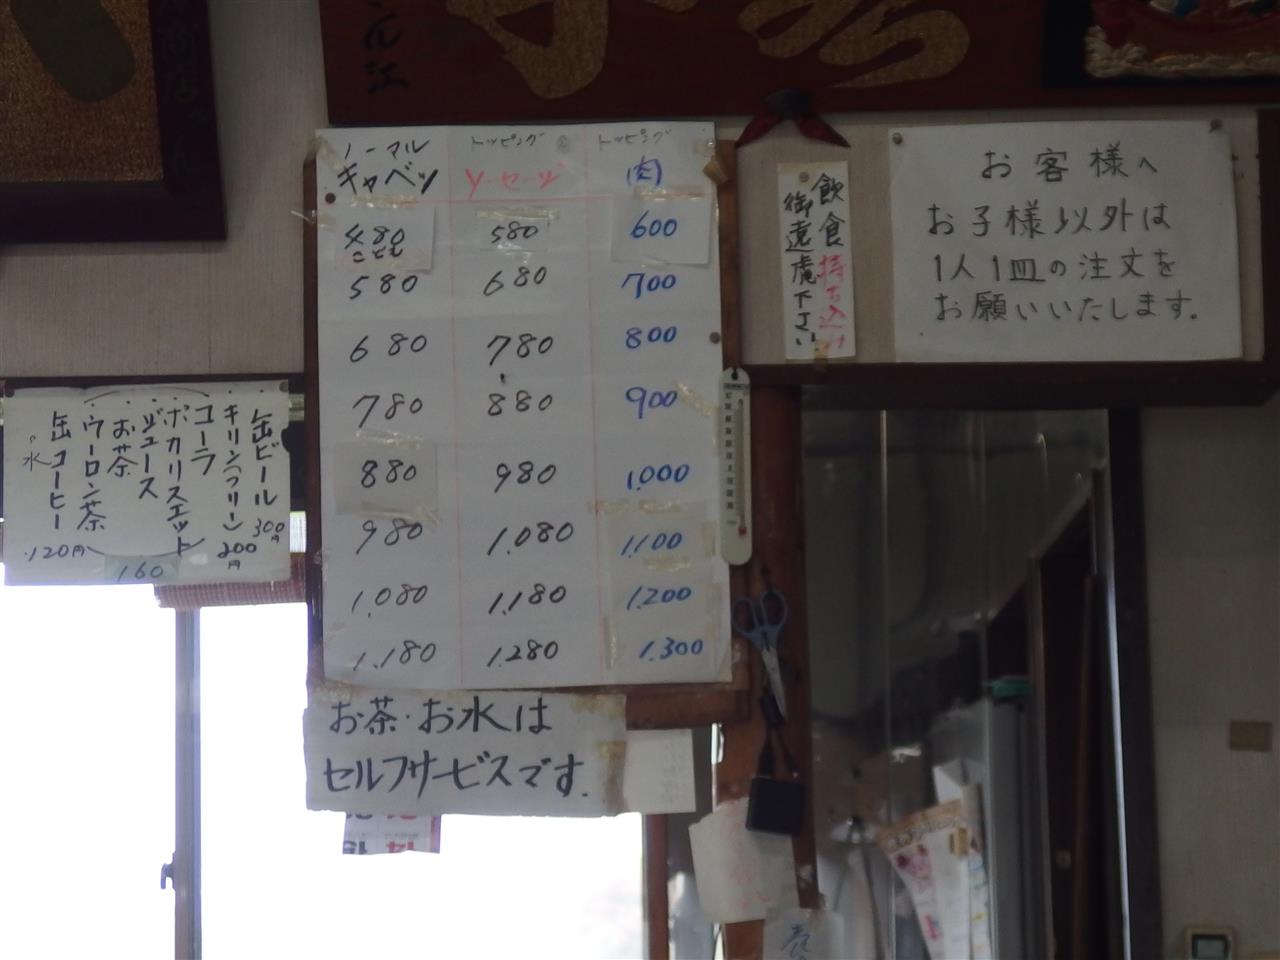 ノーマル
キャベツ
トッピング
ソーセージ
トッピング
肉
480
こども
580
600
580
680
700
680
780
800
780
880
900
880
980
1.000
980
1.080
1.100
1.080
1.180
1.200
1.180
1.280
1.300
お茶・お水は
セルフサービスです.
飲食持ち込み
御遠慮下さい
お客様へ
お子様以外は
1人1皿の注文を
お願いいたします.
缶ビール 300円
キリン(フリー) 200円
コーラ
ポカリスエット
ジュース
お茶
ウーロン茶
160
缶コーヒー 120円
水